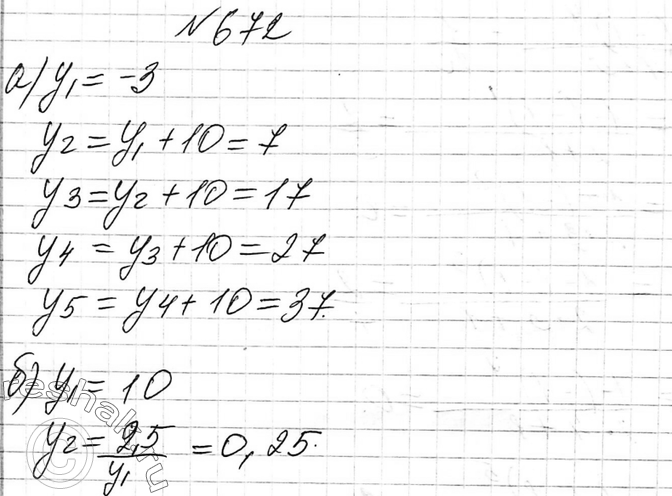 №672
а) y₁ = -3
y₂ = y₁ + 10 = 7
y₃ = y₂ + 10 = 17
y₄ = y₃ + 10 = 27
y₅ = y₄ + 10 = 37.
б) y₁ = 10
y₂ = 2,5/y₁ = 0,25.
©reshak.ru